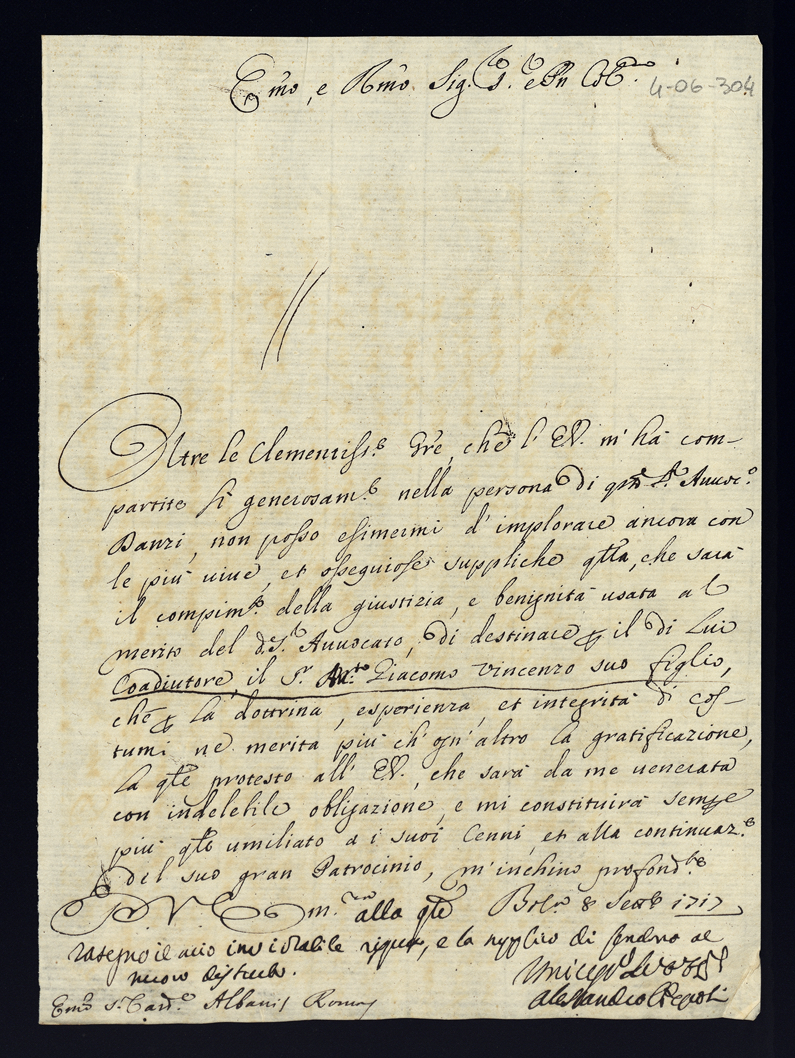 Emo, e Rmo Sig.r S.r e Pn Col.mo
4-06-304
Oltre le Clementiss.e Gre, che l' EV. m' ha com-
partite sì generosam.e nella persona di S.r Avvoc.o
Banzi, non posso esimermi d' implorare ancora con
le più vive, et osseguiose suppliche qta, che sarà
il compim.o della giustizia, e benignità usata al
merito del d.S.r Avvocato, di destinare p il di Lui
Coadiutore, il S.r Giacomo Vincenzo suo figlio,
che p la dottrina, esperienza, et integrità di cos-
tumi ne merita più ch' ogn' altro la gratificazione,
la qle protesto all' EV., che sarà da me venerata
con indelebile obligazione, e mi constituirà sempe
più qto umiliato a i suoi Cenni, et alla continuaz.e
del suo gran Patrocinio, m'inchino profond.e
D V E m.ra alla qle Bol.a 8 Setb.e 1717
rasegno il mio inviolabile, e la supplico di
nuovo
Alessandro Pepoli
Emo S.r Card.e Albani Roma